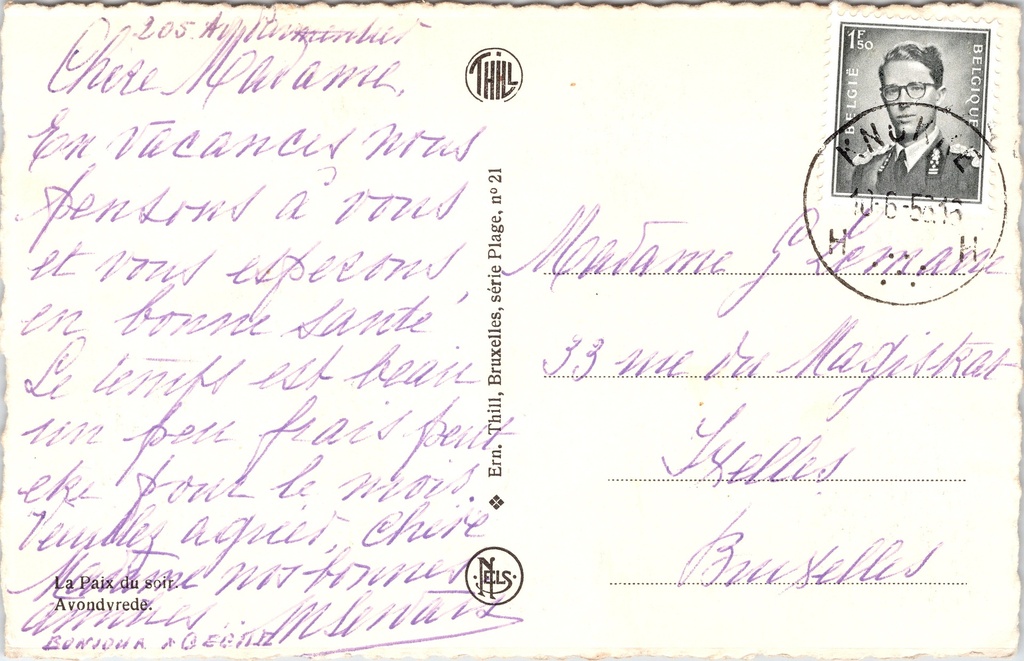 205
Chère Madame,
En vacances nous
pensons à vous
et vous esperons,
en bonne santé
Le temps est beau
un peu frais peut
etre pour le mois.
Veuillez agréer, chère
Madame nos bonnes
amitiés.
BONJOUR A
La Paix du soir.
Avondvrede.
THILL
Ern. Thill, Bruxelles, série Plage, nº 21
NELS
1F50
BELGIË
BELGIQUE
KNOKKE
10-6-5
H H
Madame
33 rue du Magistrat
Ixelles
Bruxelles